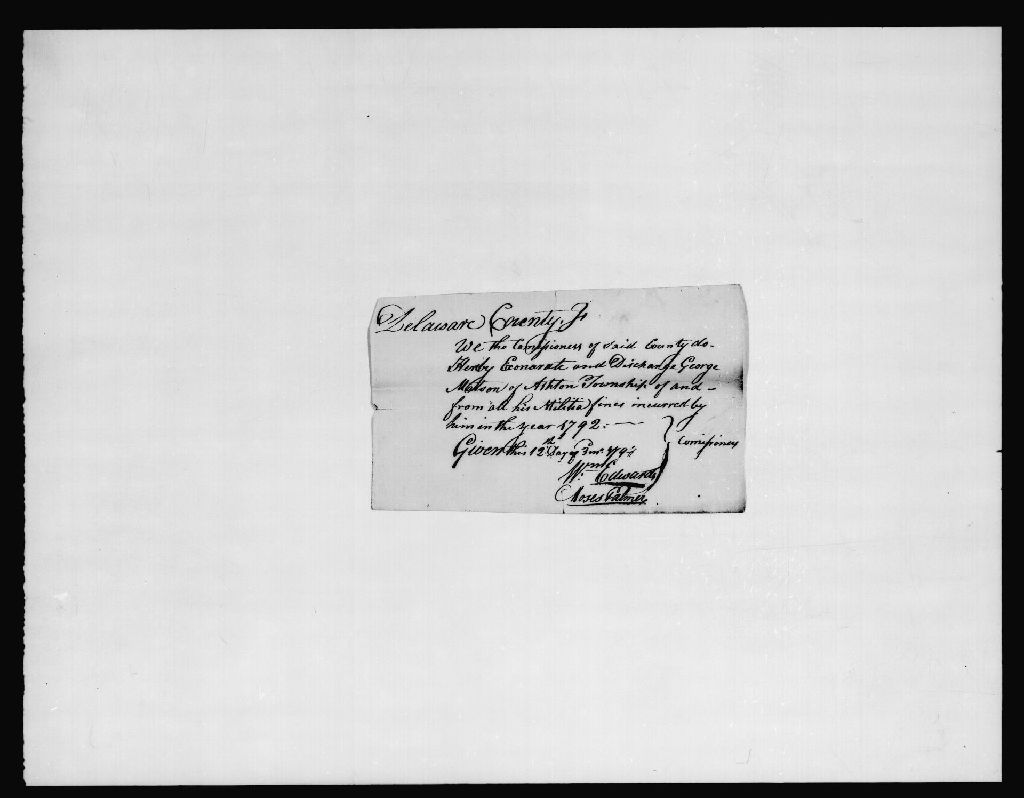 Delaware County, Ss
We the Comissioners of said County do
Herby Exonarate and Discharge George
Matson of Ashton Township of and
from all his Militia fines incurred by
him in the year 1792.
Given this 12th Day of
Wm. Edwards
Moses Palmer
Comissioners